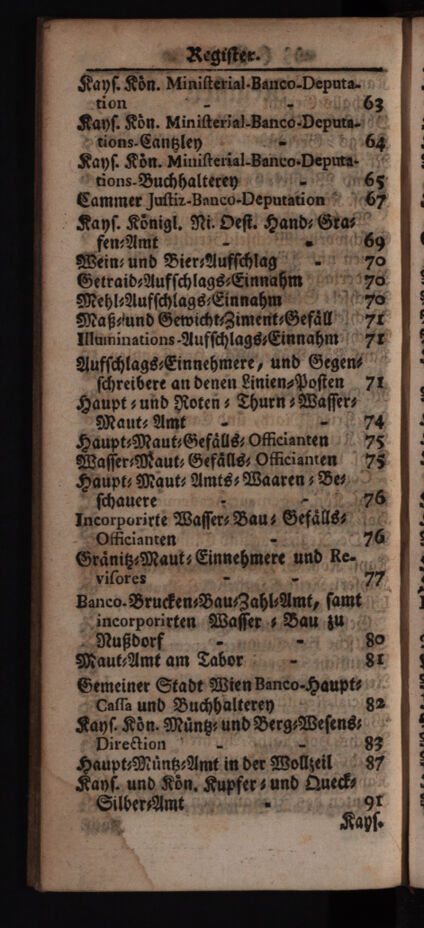 Register.
Kays. Kön. Ministerial-Banco-Deputa-
tion - - 63
Kays. Kön. Ministerial-Banco-Deputa-
tions-Cantzley - 64
Kays. Kön. Ministerial-Banco-Deputa-
tions-Buchhalterey - 65
Cammer Justiz-Banco-Deputation 67
Kays. Königl. Ni. Oest. Hand-Gra-
fen-Amt - - 69
Wein- und Bier-Aufschlag - 70
Getraid-Aufschlags-Einnahm 70
Mehl-Aufschlags-Einnahm 70
Maß- und Gewicht-Ziment-Gefäll 71
Illuminations-Aufschlags-Einnahm 71
Aufschlags-Einnehmere, und Gegen-
schreibere an denen Linien-Posten 71
Haupt- und Roten-Thurn-Wasser-
Maut-Amt - - 74
Haupt-Maut-Gefälls-Officianten 75
Wasser-Maut-Gefälls-Officianten 75
Haupt-Maut-Amts-Waaren-Be-
schauere - - 76
Incorporirte Wasser-Bau-Gefälls-
Officianten - 76
Gränitz-Maut-Einnehmere und Re-
visores - - 77
Banco-Brucken-Bau-Zahl-Amt, samt
incorporirten Wasser-Bau zu
Nußdorf - - 80
Maut-Amt am Tabor - 81
Gemeiner Stadt Wien Banco-Haupt-
Cassa und Buchhalterey 82
Kays. Kön. Müntz- und Berg-Wesens-
Direction - - 83
Haupt-Müntz-Amt in der Wollzeil 87
Kays. und Kön. Kupfer- und Queck-
Silber-Amt - 91
Kays.